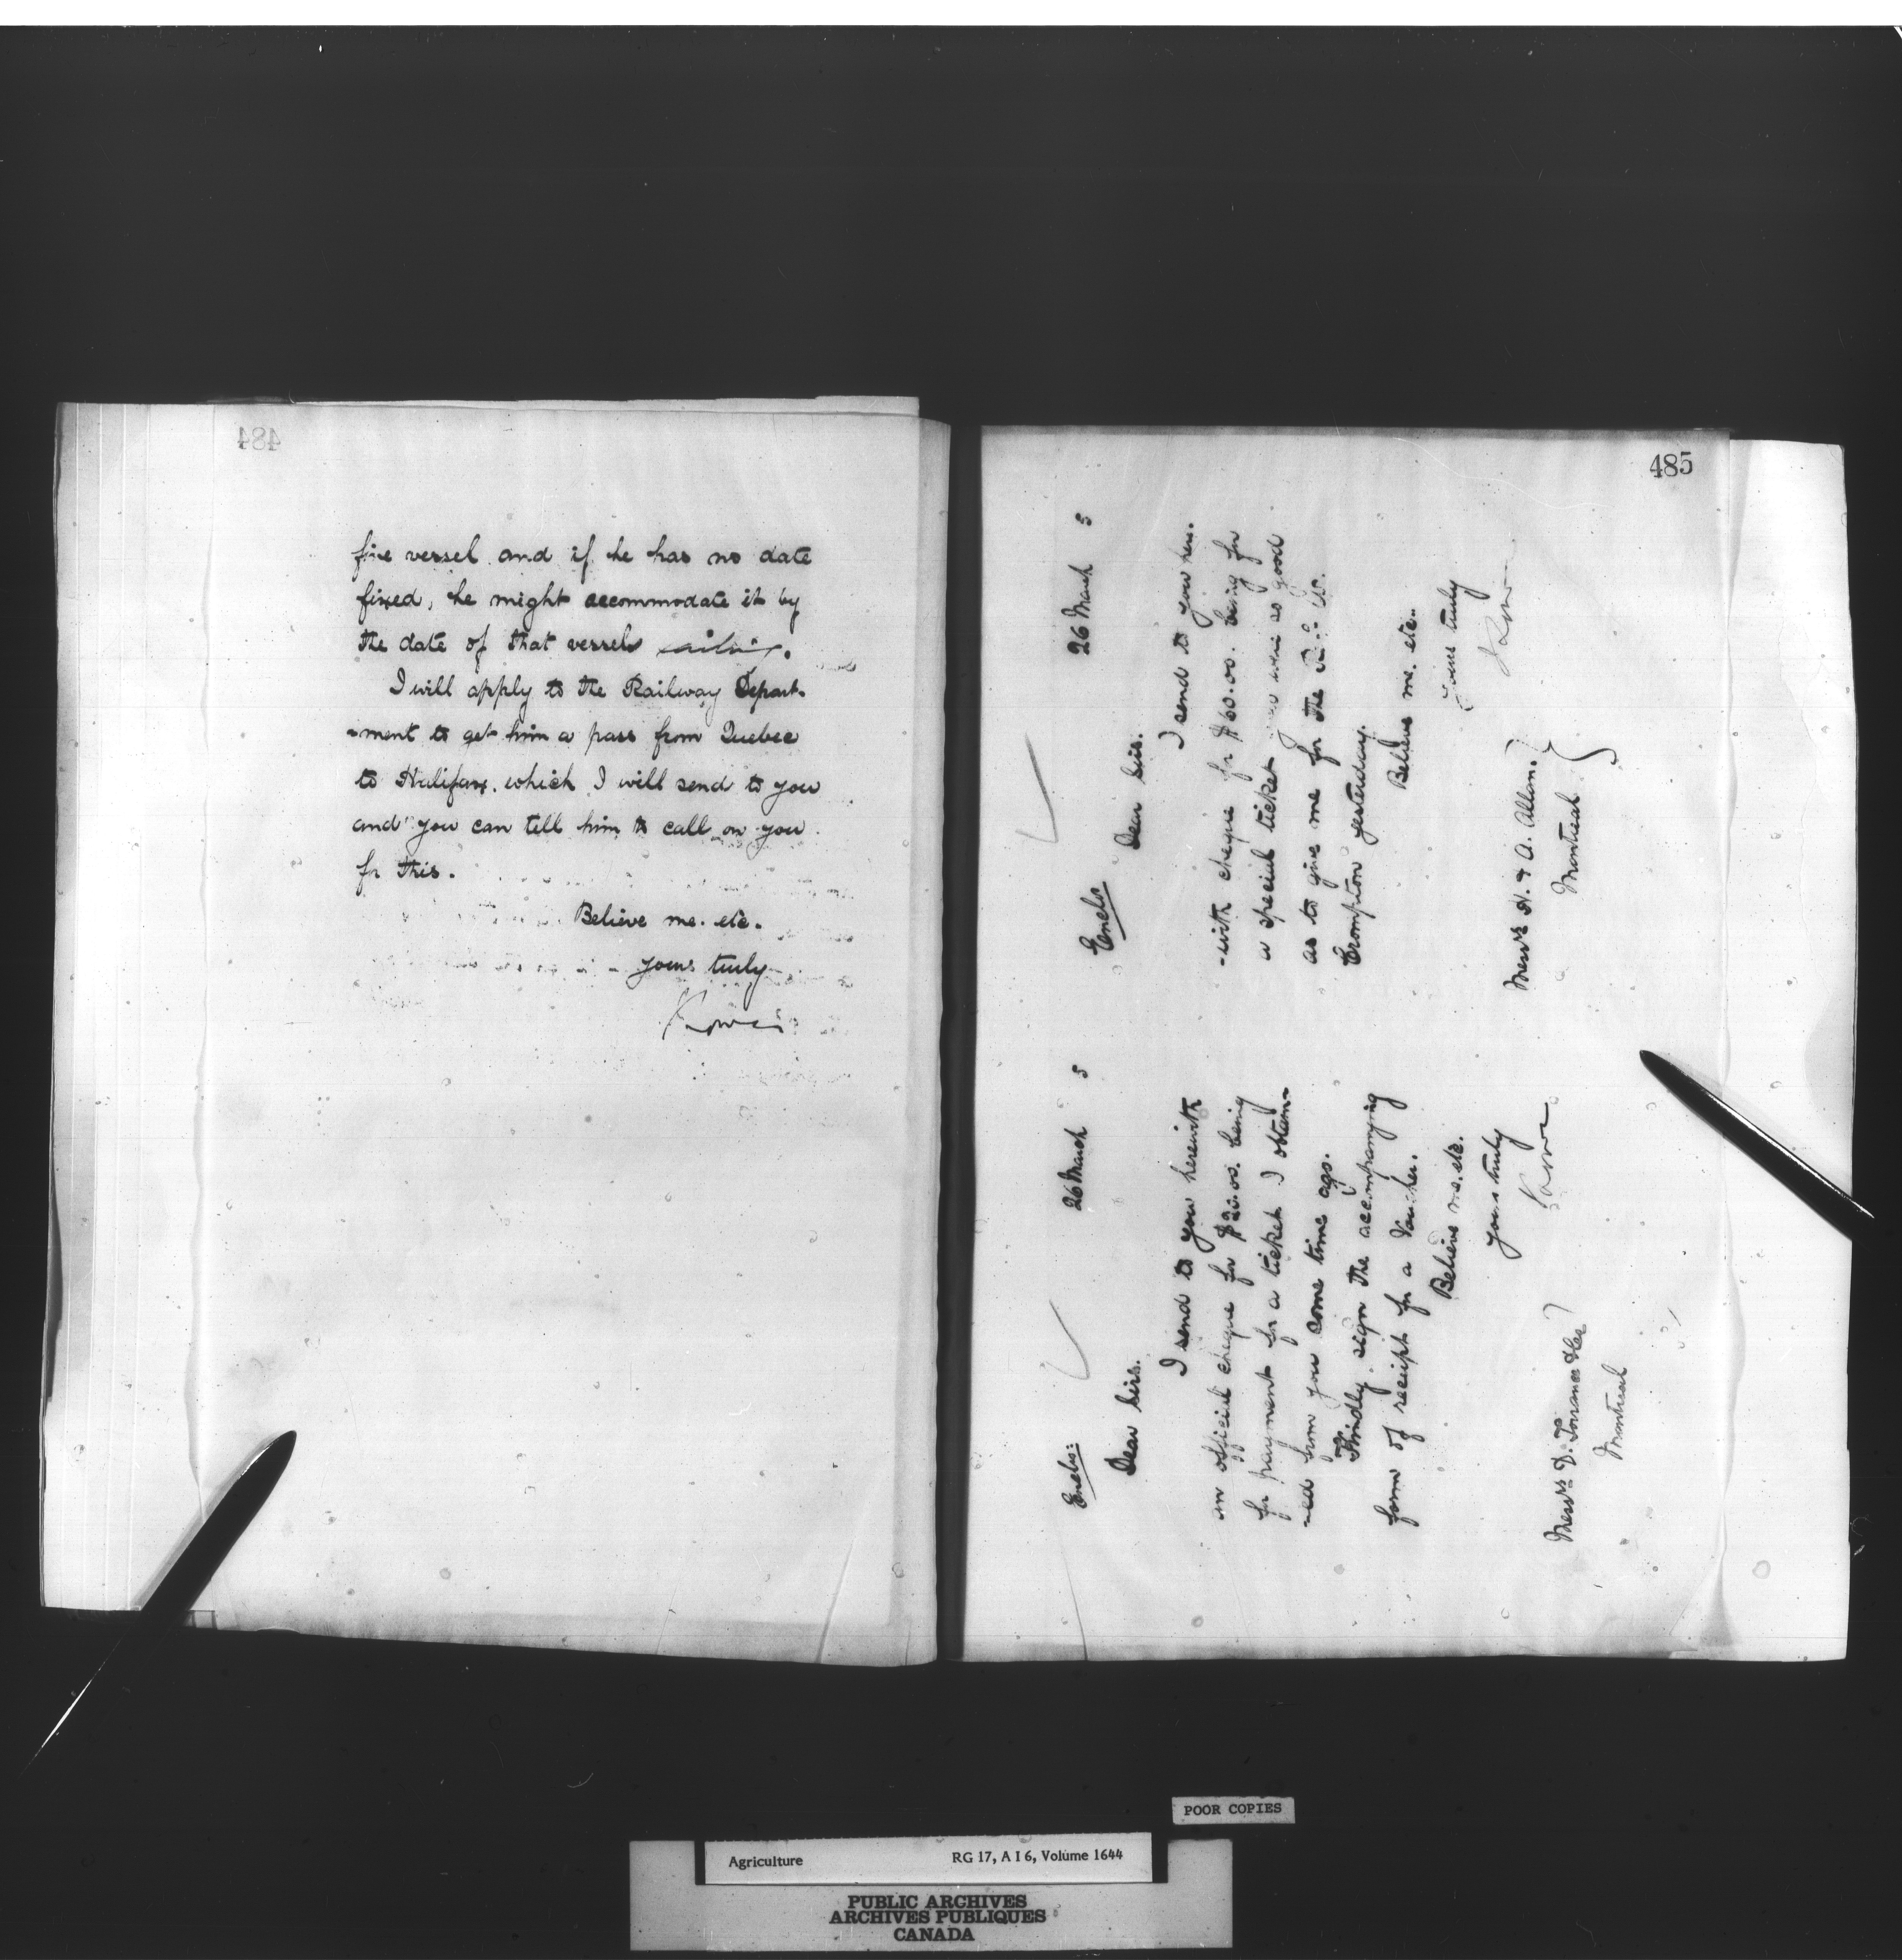 484
fine vessel and if he has no date
fixed, he might accommodate it by
the date of that vessels sailing.
I will apply to the Railway Depart-
-ment to get him a pass from Quebec
to Halifax. which I will send to you
and you can tell him to call on you
for this.
Believe me. etc.
yours truly
485
26 March 5
Encls:
Dear Sirs.
I send to you herewith
an official cheque for $20.00. being
for payment for a ticket I obtai-
-ned from you some time ago.
Kindly sign the accompanying
form of receipt for a Voucher.
Believe me. etc.
yours truly
Lowe
Messrs D. Torrance & Co
Montreal
26 March 5
Encls
Dear Sirs.
I send to you here-
-with cheque for $60.00. being for
a special ticket you were so good
as to give me for the
Crompton yesterday.
Believe me. etc.
yours truly
Lowe
Messrs H. & A. Allan.
Montreal
POOR COPIES
Agriculture RG 17, A I 6, Volume 1644
PUBLIC ARCHIVES
ARCHIVES PUBLIQUES
CANADA